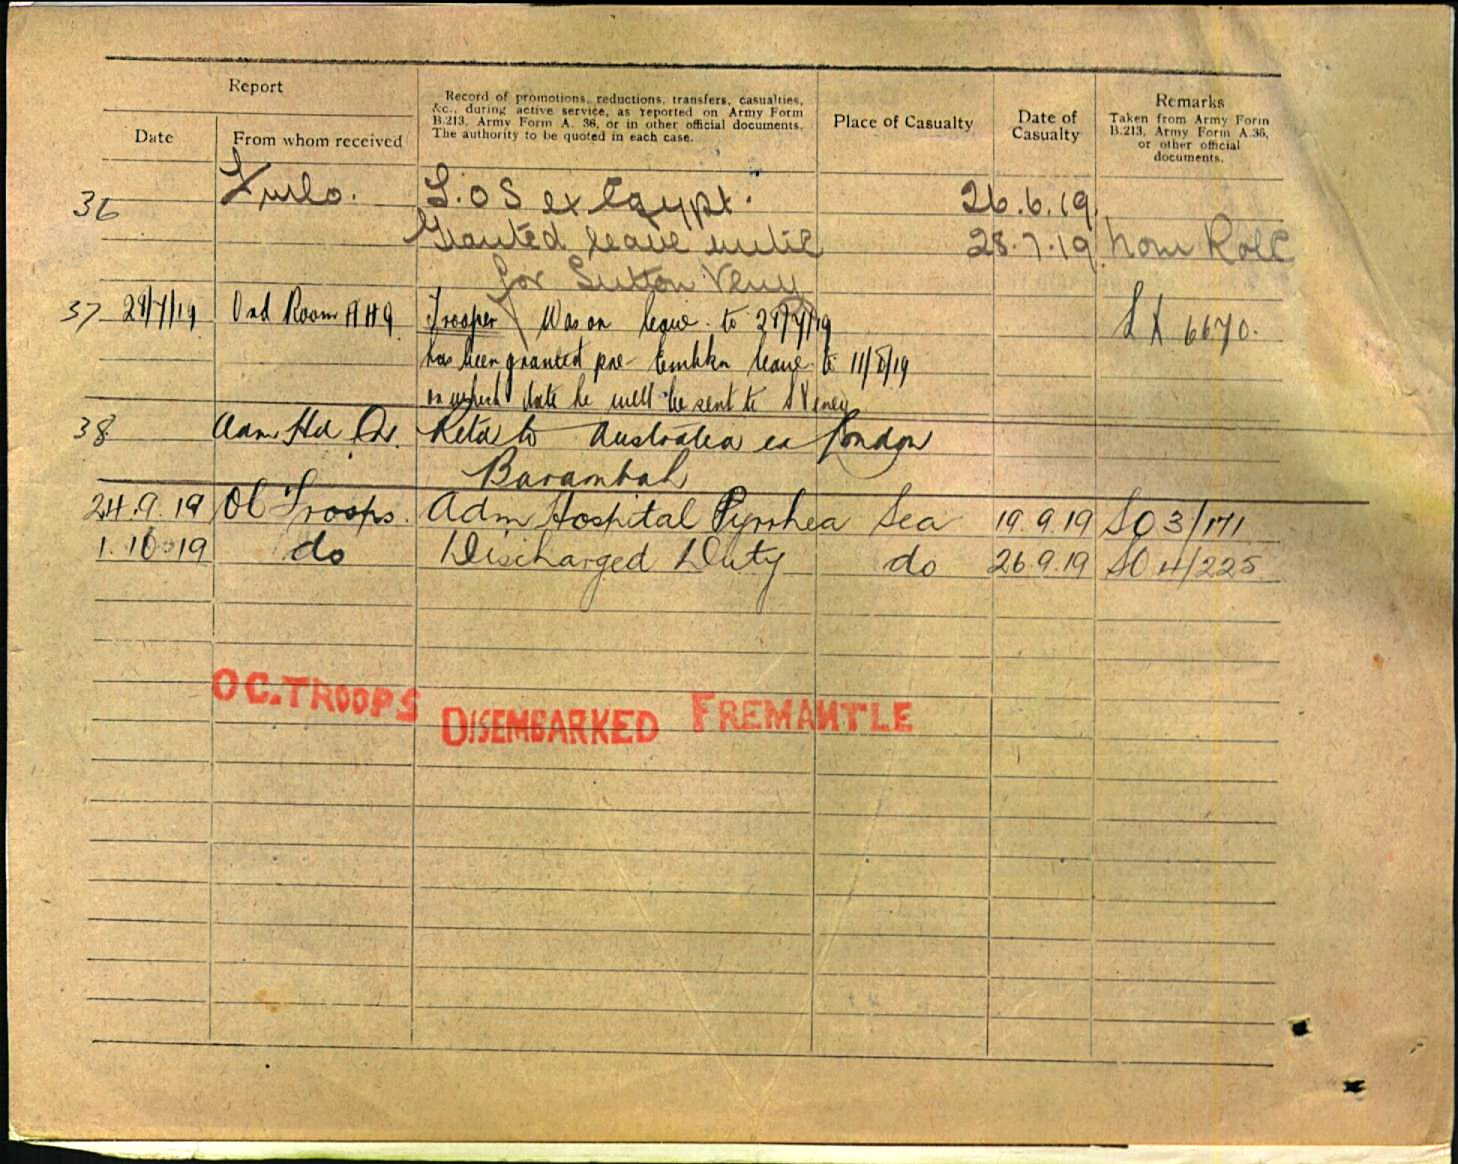 Report
Date
From whom received
Record of promotions, reductions, transfers, casualties,
&c., during active service, as reported on Army Form
B.213, Army Form A. 36, or in other official documents.
The authority to be quoted in each case.
Place of Casualty
Date of
Casualty
Remarks
Taken from Army Form
B.213, Army Form A.36,
or other official
documents.
36 Furlo. L.O S ex Egypt. 26.6.19.
Granted leave until 28.7.19 Nom Roll
for Sutton Veny
37 28/7/19 Ord Room AHQ Trooper Was on leave to 28/7/19 LX 6670.
has been granted leave to 11/8/19
on which date he will be sent to S Veney
38 Adm Hd Qs. Retd to Australia ex London
Barambah
24.9.19 OC Troops. Adm Hospital Pyrrhea Sea 19.9.19 SO 3/171
1.10.19 do Discharged Duty do 26.9.19 SO 4/225
OC. TROOPS DISEMBARKED FREMANTLE